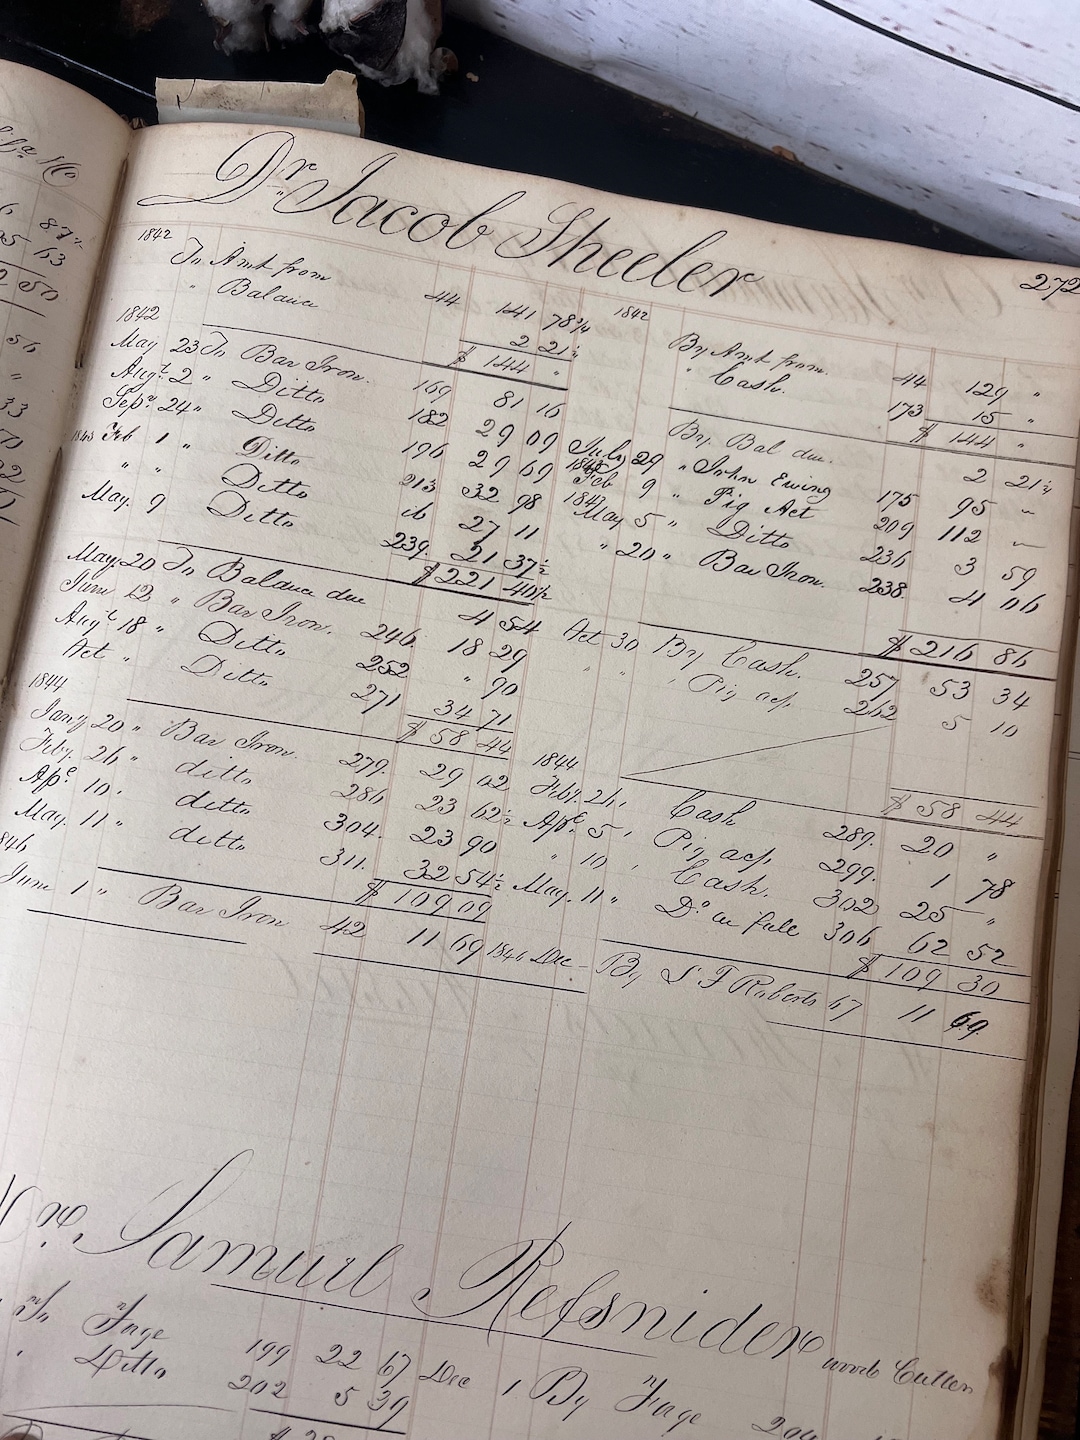 Dr Jacob Sheeler
272
1842
To Amt from 44 141 78 3/4
" Balance 2 21 1/4
$ 144 "
1842
May 23 To Bar Iron. 169 81 16
Augt 2 " Ditto 182 29 09
Sepr 24 " Ditto 196 29 69
1843 Feb 1 " Ditto 213 32 98
" " Ditto ib 27 11
May. 9 Ditto 239. 21 37 1/2
$ 221 40 1/2
May 20 To Balance due 4 54
June 12 " Bar Iron. 246 18 29
Augt 18 " Ditto 252 " 90
Oct " Ditto 271 34 71
$ 58 44
1844
Jany 20 " Bar Iron. 279. 29 02
Feby. 26 " ditto 286 23 62 1/2
Apl 10. ditto 304. 23 90
May. 11 " ditto 311. 32 54 1/2
$ 109 09
1846
June 1 " Bar Iron 42 11 69
1842
By Amt from. 44 129 "
" Cash. 173 15 "
$ 144 "
By. Bal due. 2 21 1/4
July 29 " John Ewing 175 95 "
1843
Feb 9 " Pig Act 209 112 "
1843
May 5 " Ditto 236 3 59
" 20 " Bar Iron. 238. 4 06
$ 216 86
Oct 30 By Cash. 257 53 34
" " " Pig acp 262 5 10
$ 58 44
1844
Feby. 26 " Cash 289. 20 "
Apl 5 " Pig acp 299. 1 78
" 10 " Cash. 302 25 "
May. 11 " Do in full 306 62 52
$ 109 30
1846 Dec By S F Roberts 67 11 69
Dr. Samuel Refsnider wood Cutter
To Page 199 22 67 Dec 1 By Page 204
" Ditto 202 5 39